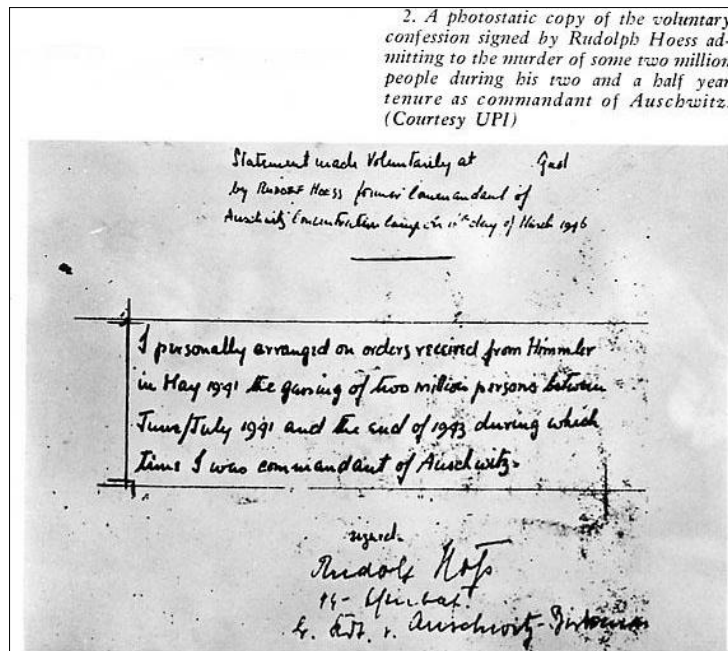 2. A photostatic copy of the voluntary
confession signed by Rudolph Hoess ad-
mitting to the murder of some two million
people during his two and a half year
tenure as commandant of Auschwitz.
(Courtesy UPI)
Statement made voluntarily at Gaol
by Rudolf Hoess former Commandant of
Auschwitz Concentration Camp on day of March 1946
I personally arranged on orders received from Himmler
in May 1941 the gassing of two million persons between
June/July 1941 and the end of 1943 during which
time I was commandant of Auschwitz.
signed.
Rudolf Höß
Kdt. v. Auschwitz-Birkenau